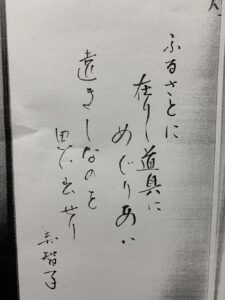 ふるさとに
在りし道具に
めぐりあい
遠きしなのを
思い出せり
智子